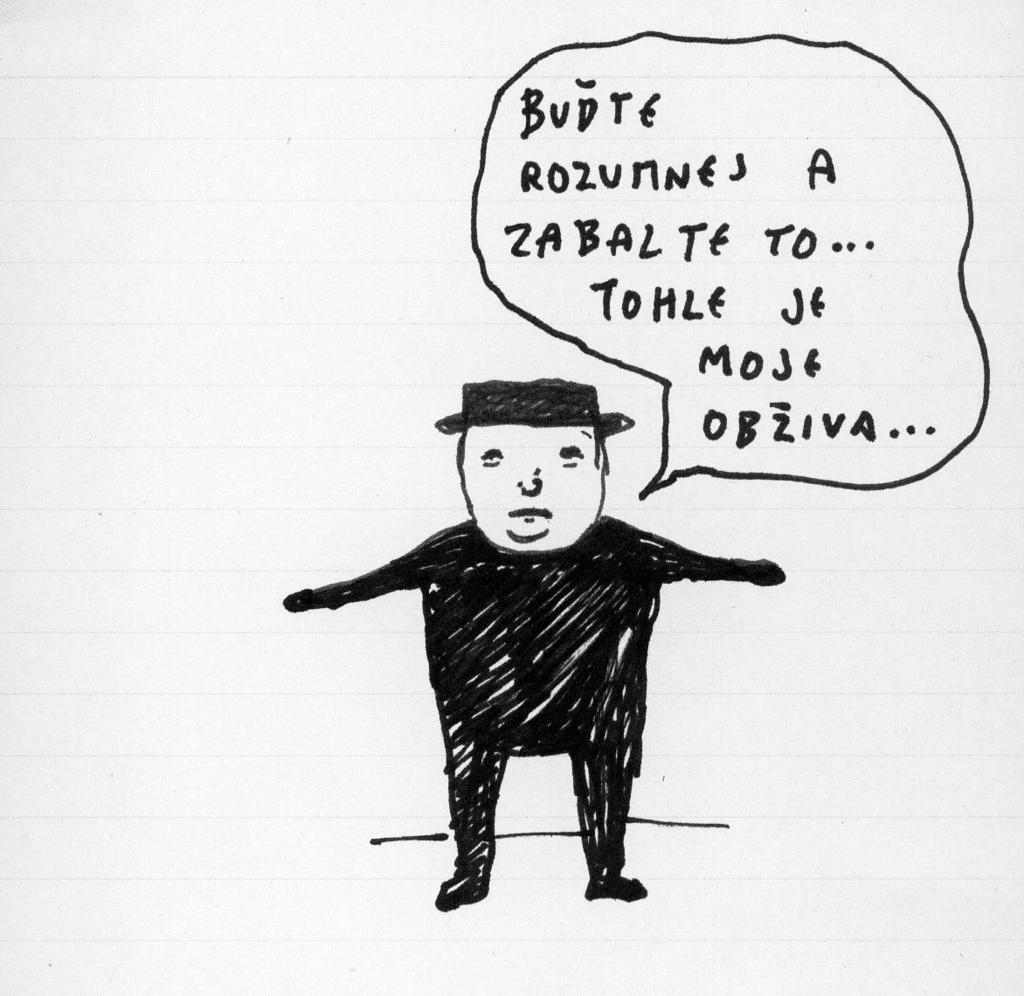 BUĎTE
ROZUMNEJ A
ZABALTE TO...
TOHLE JE
MOJE
OBŽIVA...